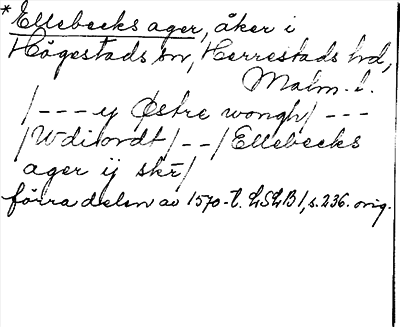 *Ellebecks ager, åker i
Högestads sn, Herrestads hd,
Malm. l.
/--- y Østre wongh/ ---
/Wdi ordt/--/Ellebecks
ager ij skr/
förra delen av 1570-t. LSLB1, s. 236. orig.